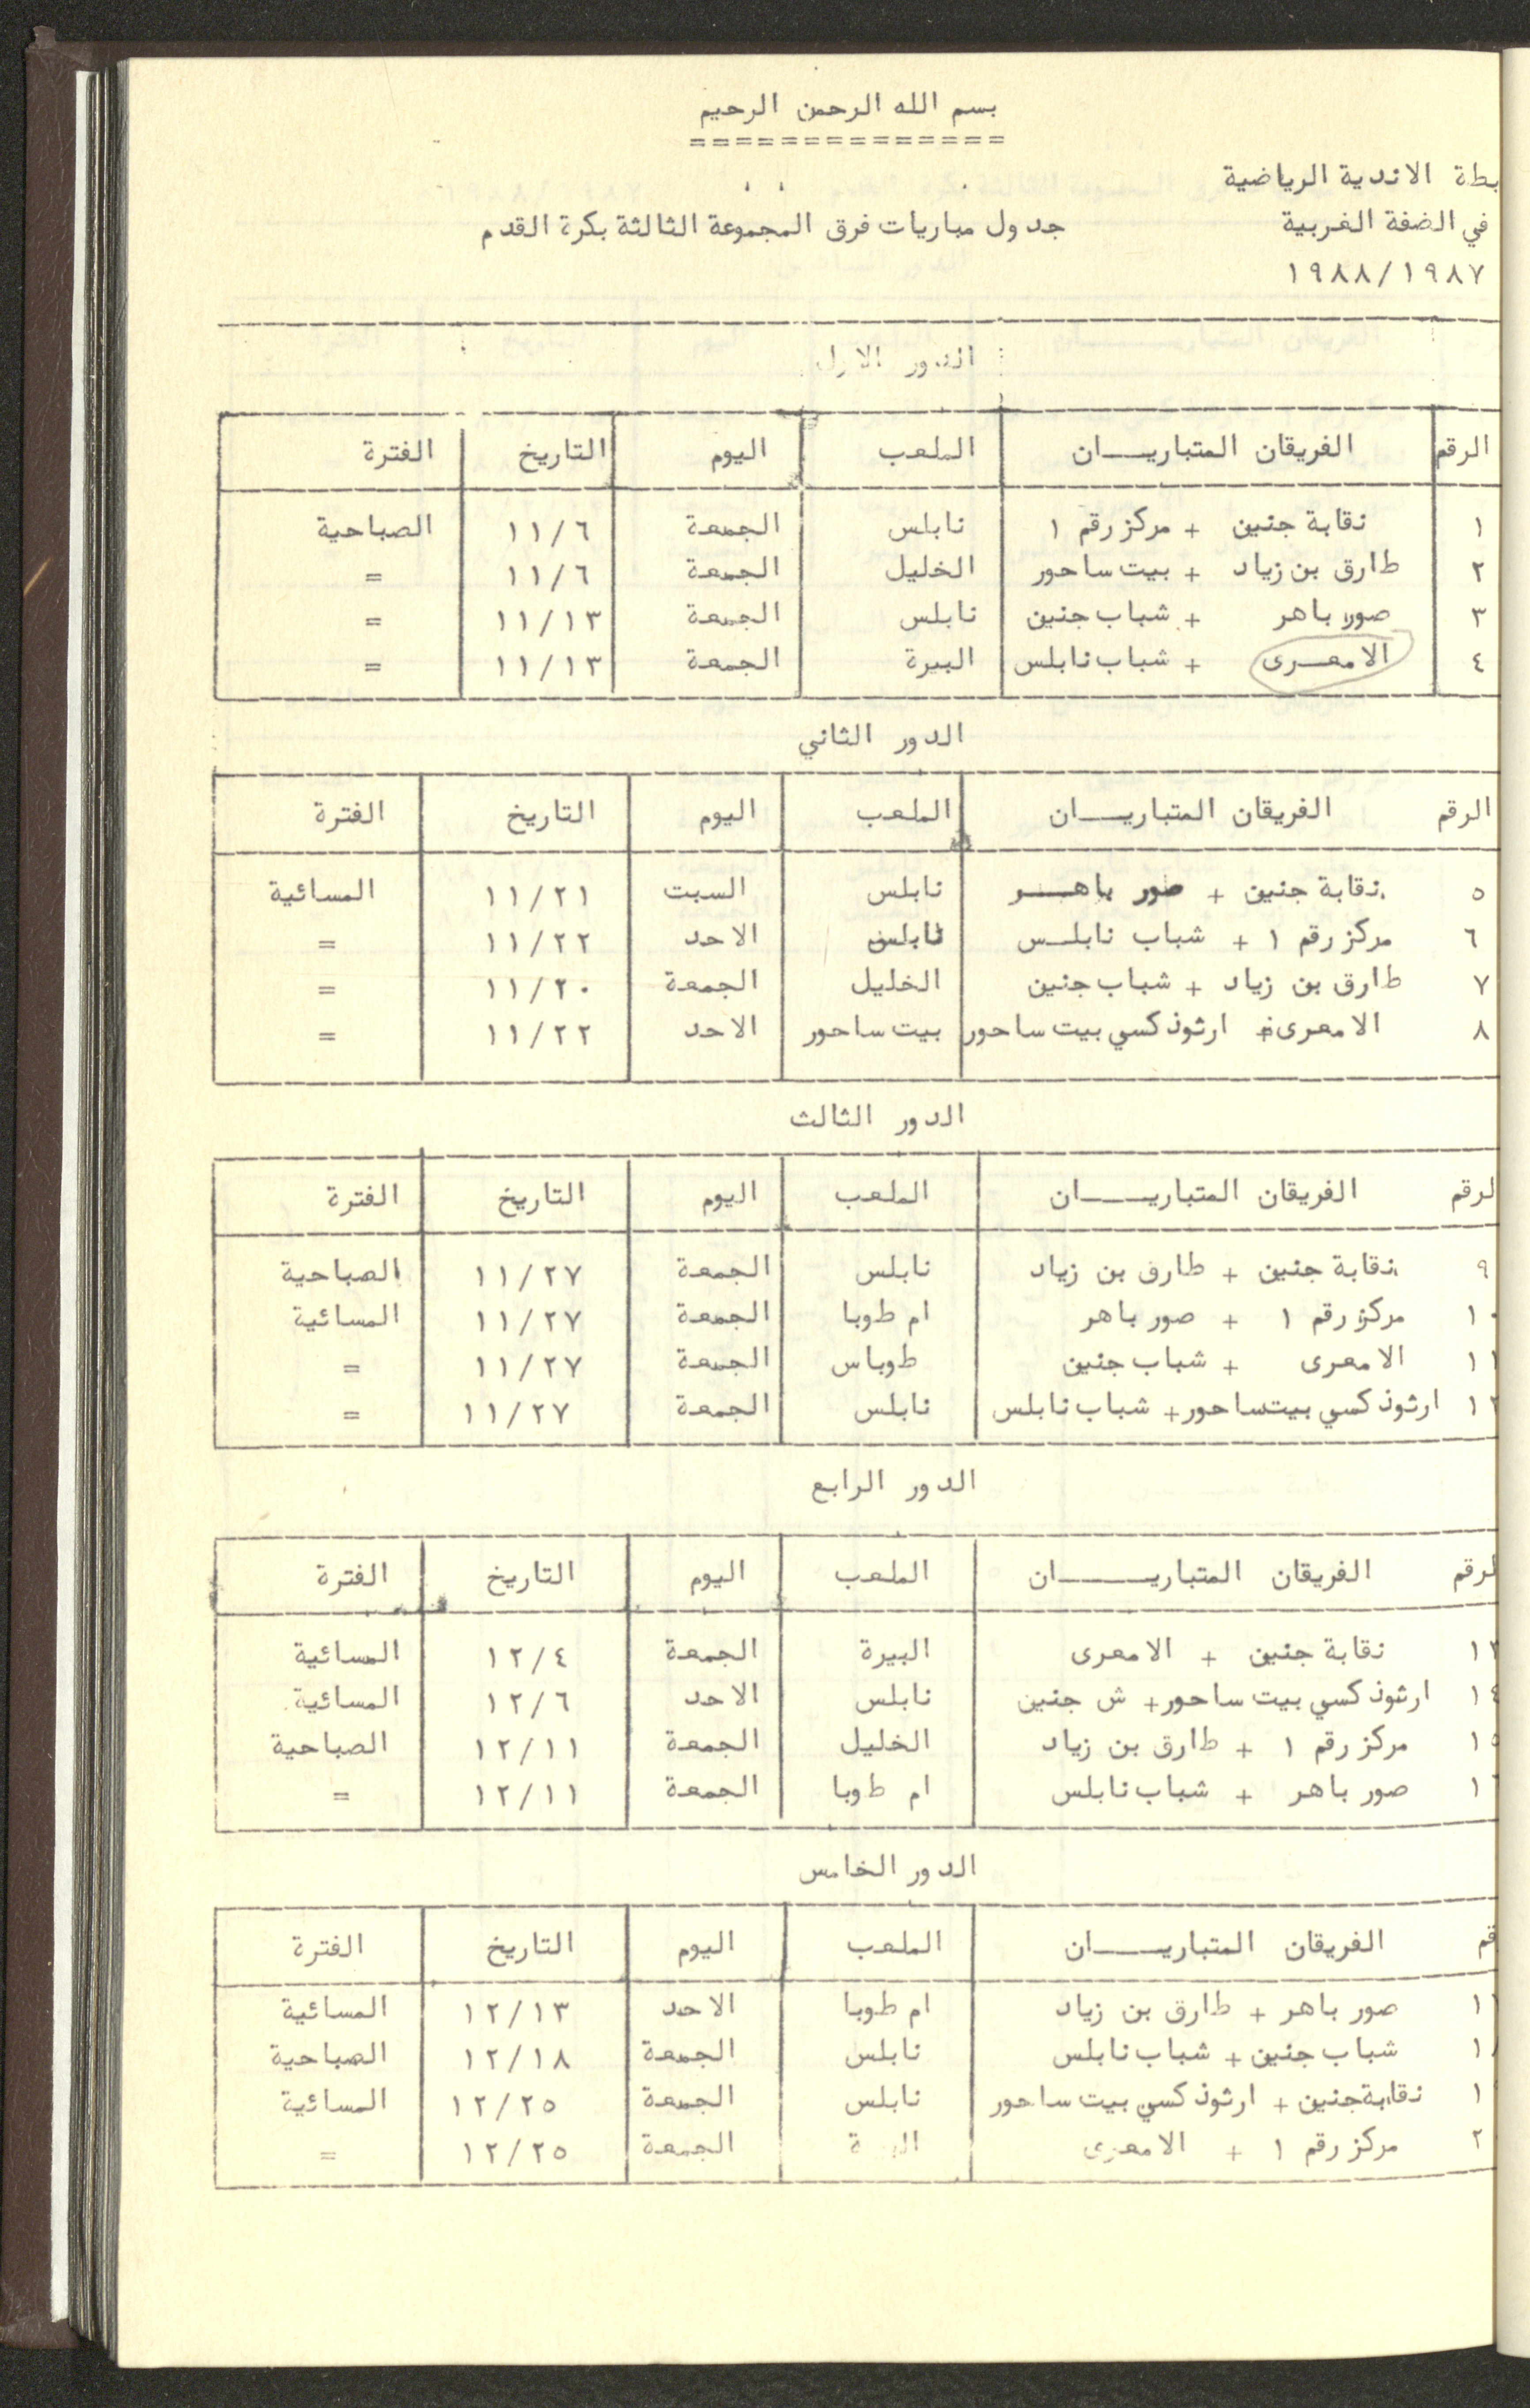 بسم الله الرحمن الرحيم
==============
بطة الاندية الرياضية
في الضفة الغربية
جدول مباريات فرق المجموعة الثالثة بكرة القدم
١٩٨٨/١٩٨٧
الدور الاول
الرقم الفريقان المتباريـــان الملعب اليوم التاريخ الفترة
١ نقابة جنين + مركز رقم ١ نابلس الجمعة ١١/٦ الصباحية
٢ طارق بن زياد + بيت ساحور الخليل الجمعة ١١/٦ =
٣ صور باهر + شباب جنين نابلس الجمعة ١١/١٣ =
٤ الامعـرى + شباب نابلس البيرة الجمعة ١١/١٣ =
الدور الثاني
الرقم الفريقان المتباريـــان الملعب اليوم التاريخ الفترة
٥ نقابة جنين + صور باهـــر نابلس السبت ١١/٢١ المسائية
٦ مركز رقم ١ + شباب نابلـس نابلس الاحد ١١/٢٢ =
٧ طارق بن زياد + شباب جنين الخليل الجمعة ١١/٢٠ =
٨ الامعرى + ارثوذكسي بيت ساحور بيت ساحور الاحد ١١/٢٢ =
الدور الثالث
لرقم الفريقان المتباريــــان الملعب اليوم التاريخ الفترة
٩ نقابة جنين + طارق بن زياد نابلس الجمعة ١١/٢٧ الصباحية
١٠ مركز رقم ١ + صور باهر ام طوبا الجمعة ١١/٢٧ المسائية
١١ الامعرى + شباب جنين طوباس الجمعة ١١/٢٧ =
١٢ ارثوذكسي بيتساحور + شباب نابلس نابلس الجمعة ١١/٢٧ =
الدور الرابع
لرقم الفريقان المتباريـــــان الملعب اليوم التاريخ الفترة
١٣ نقابة جنين + الامعرى البيرة الجمعة ١٢/٤ المسائية
١٤ ارثوذكسي بيت ساحور + ش جنين نابلس الاحد ١٢/٦ المسائية
١٥ مركز رقم ١ + طارق بن زياد الخليل الجمعة ١٢/١١ الصباحية
١٦ صور باهر + شباب نابلس ام طوبا الجمعة ١٢/١١ =
الدور الخامس
قم الفريقان المتباريــــان الملعب اليوم التاريخ الفترة
١ صور باهر + طارق بن زياد ام طوبا الاحد ١٢/١٣ المسائية
١ شباب جنين + شباب نابلس نابلس الجمعة ١٢/١٨ الصباحية
١ نقابةجنين + ارثوذكسي بيت ساحور نابلس الجمعة ١٢/٢٥ المسائية
٢ مركز رقم ١ + الامعرى الجمعة ١٢/٢٥ =